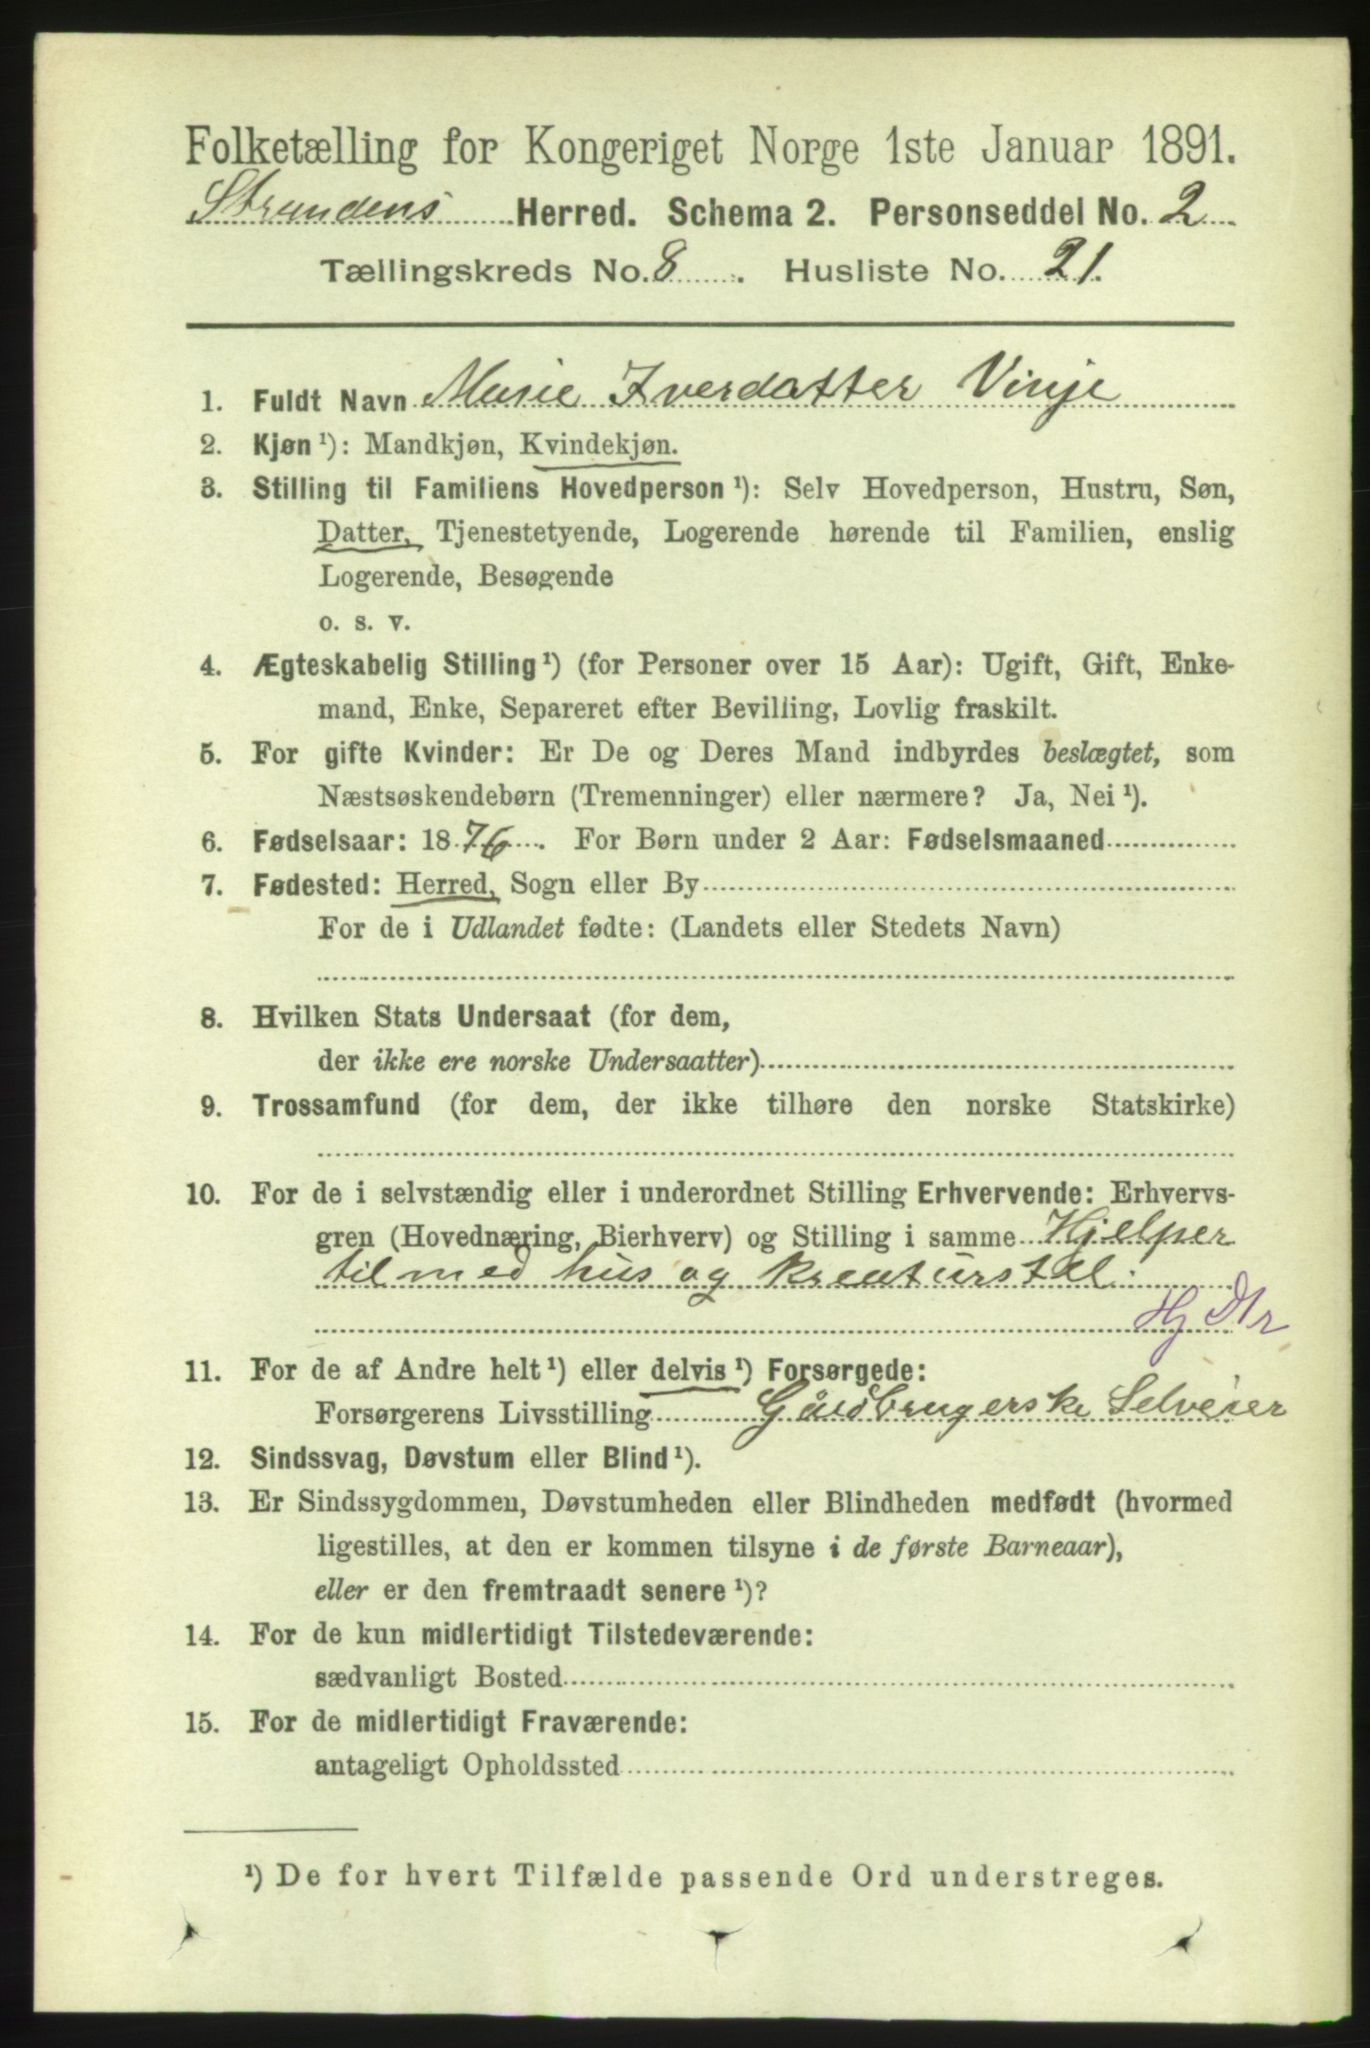 Folketælling for Kongeriget Norge 1ste Januar 1891.
Strandens Herred. Schema 2. Personseddel No. 2
Tællingskreds No. 8. Husliste No. 21.
1. Fuldt Navn Marie Iverdatter Vinje
2. Kjøn ¹): Mandkjøn, Kvindekjøn.
3. Stilling til Familiens Hovedperson ¹): Selv Hovedperson, Hustru, Søn,
Datter, Tjenestetyende, Logerende hørende til Familien, enslig
Logerende, Besøgende
o. s. v.
4. Ægteskabelig Stilling ¹) (for Personer over 15 Aar): Ugift, Gift, Enke-
mand, Enke, Separeret efter Bevilling, Lovlig fraskilt.
5. For gifte Kvinder: Er De og Deres Mand indbyrdes beslægtet, som
Næstsøskendebørn (Tremenninger) eller nærmere? Ja, Nei ¹).
6. Fødselsaar: 1876. For Børn under 2 Aar: Fødselsmaaned
7. Fødested: Herred, Sogn eller By
For de i Udlandet fødte: (Landets eller Stedets Navn)
8. Hvilken Stats Undersaat (for dem,
der ikke ere norske Undersaatter)
9. Trossamfund (for dem, der ikke tilhøre den norske Statskirke)
10. For de i selvstændig eller i underordnet Stilling Erhvervende: Erhvervs-
gren (Hovednæring, Bierhverv) og Stilling i samme Hjelper
til med hus og kreaturstel.
Hj Dtr
11. For de af Andre helt ¹) eller delvis ¹) Forsørgede:
Forsørgerens Livsstilling Gårdbrugerske Selveier
12. Sindssvag, Døvstum eller Blind ¹).
13. Er Sindssygdommen, Døvstumheden eller Blindheden medfødt (hvormed
ligestilles, at den er kommen tilsyne i de første Barneaar),
eller er den fremtraadt senere ¹)?
14. For de kun midlertidigt Tilstedeværende:
sædvanligt Bosted
15. For de midlertidigt Fraværende:
antageligt Opholdssted
¹) De for hvert Tilfælde passende Ord understreges.